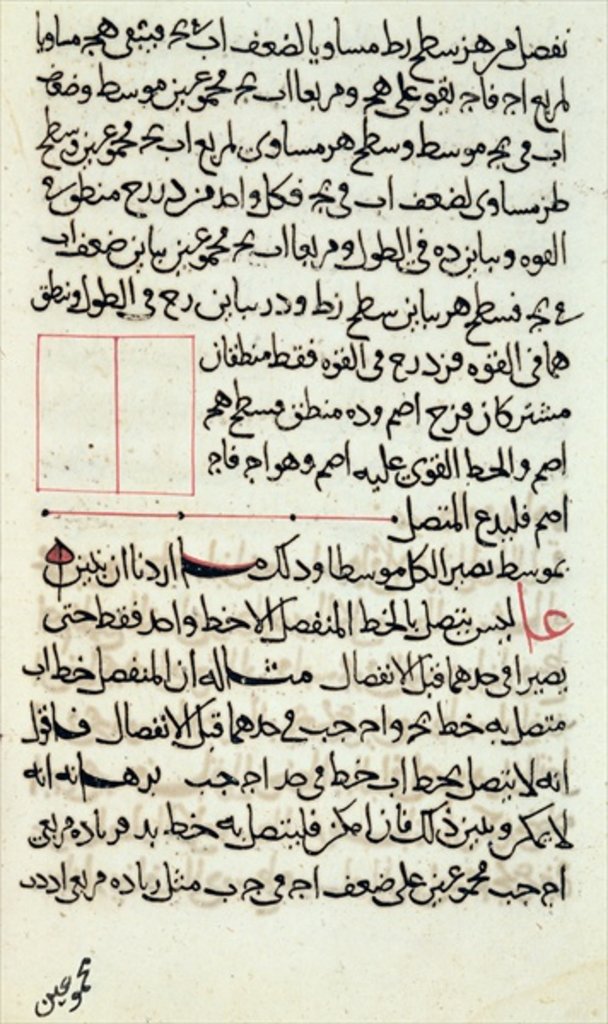 نفصل من هز سطح رط مساويا لضعف اب في بج فيبقى هج مساويا
لمربع اج فاج يقوى على هج ومربعا اب بج مجموعين موسط وضعف
اب في بج موسط وسطح هر مساوى لمربع اب بج مجموعين وسطح
طز مساوى لضعف اب في بج فكل واحد من در رح منطق في
القوه ويباين ده في الطول ومربعا اب بج مجموعين يباين ضعف اب
في بج فسطح هر يباين سطح رط و در يباين رح في الطول ومنطق
هما في القوه فزد رح في القوه فقط منطقان
مشتركان فزح اصم وده منطق فسطح هج
اصم والخط القوى عليه اصم وهو اج فاج
اصم فليدع المتصل
بموسط يصير الكل موسطا وذلك م اردنا ان نبين
عا ليس يتصل بالخط المنفصل الا خط واحد فقط حتى
يصيرا في حدهما قبل الانفصال مثاله ان المنفصل خط اب
متصل به خط بج و اج جب في حدهما قبل الانفصال فاقول
انه لا يتصل بخط اب خط في حد اج جب برهانه انه
لا يمكن وبين ذلك فان امكن فليتصل به خط بد فزياده مربعي
اج جب مجموعين على ضعف اج في جب مثل زياده مربعي اد دب
مجموعين